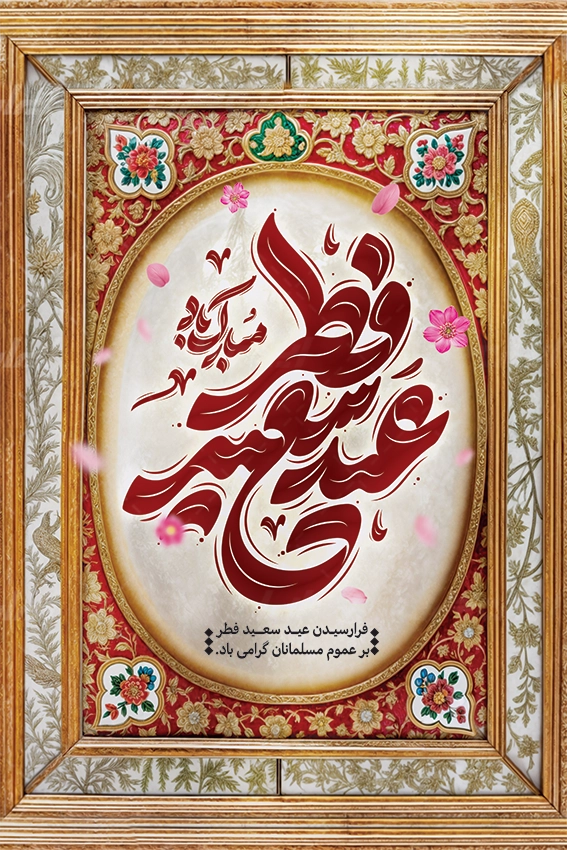 عید سعید
فطر
مبارکباد
فرارسیدن عید سعید فطر
بر عموم مسلمانان گرامی باد.